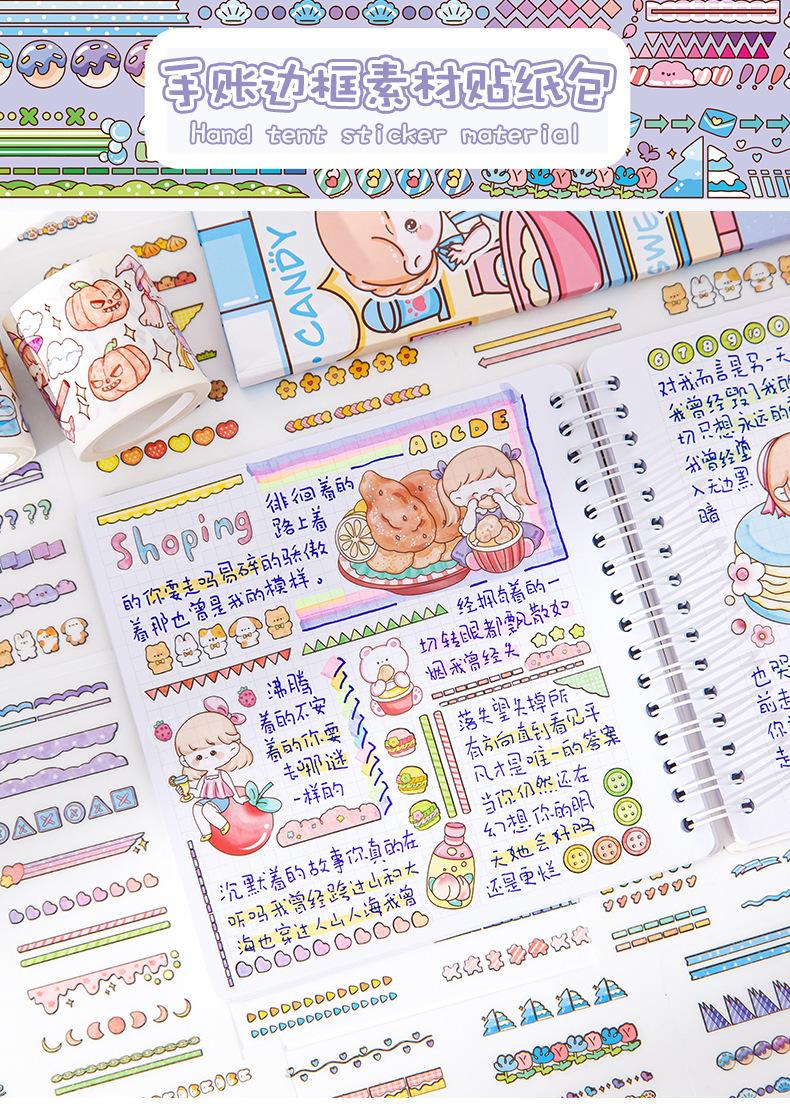 手账边框素材贴纸包
Hand tent sticker material
CANDY
SWE
ABCDE
Shoping
徘徊着的
路上着
的你要走吗易碎的骄傲
着那也曾是我的模样。
经拥有着的一
切转眼都飘散如
烟我曾经失
沸腾
着的不安
着的你要
去哪谜
一样的
落失望失掉所
有方向直到看见平
凡才是唯一的答案
当你仍然还在
幻想你的明
天她会好吗
还是更烂
沉默着的故事你真的在
听吗我曾经跨过山和大
海也穿过人山人海我曾
6 7 8 9 10
对我而言是另一天
我曾经毁了我的
切只想永远的
我曾经堕
入无边黑
暗
也哭
前走
你
走